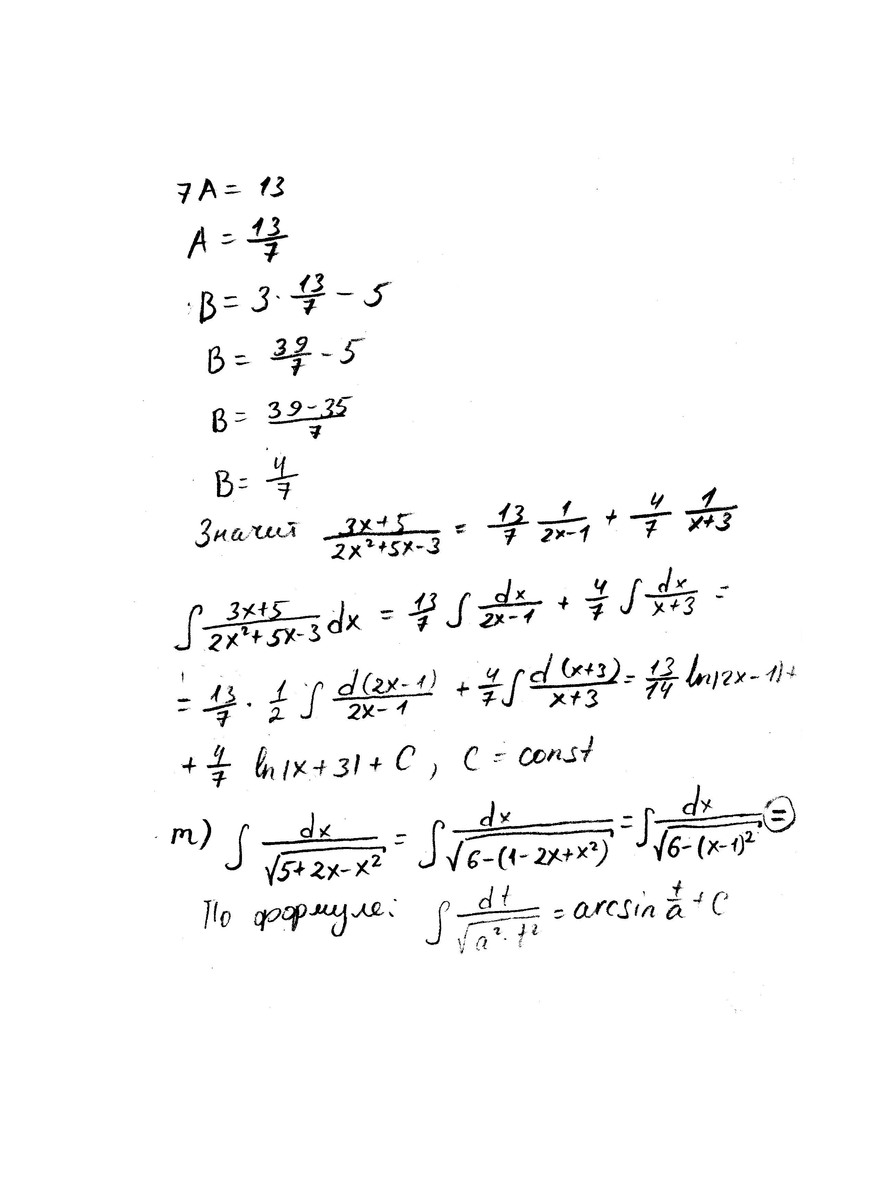 7A = 13
A = 13/7
B = 3 · 13/7 - 5
B = 39/7 - 5
B = (39-35)/7
B = 4/7
Значит (3x+5)/(2x²+5x-3) = 13/7 1/(2x-1) + 4/7 1/(x+3)
∫ (3x+5)/(2x²+5x-3) dx = 13/7 ∫ dx/(2x-1) + 4/7 ∫ dx/(x+3) =
= 13/7 · 1/2 ∫ d(2x-1)/(2x-1) + 4/7 ∫ d(x+3)/(x+3) = 13/14 ln|2x-1| +
+ 4/7 ln|x+3| + C, C = const
m) ∫ dx/√(5+2x-x²) = ∫ dx/√(6-(1-2x+x²)) = ∫ dx/√(6-(x-1)²) =
По формуле: ∫ dt/√(a²-t²) = arcsin t/a + C